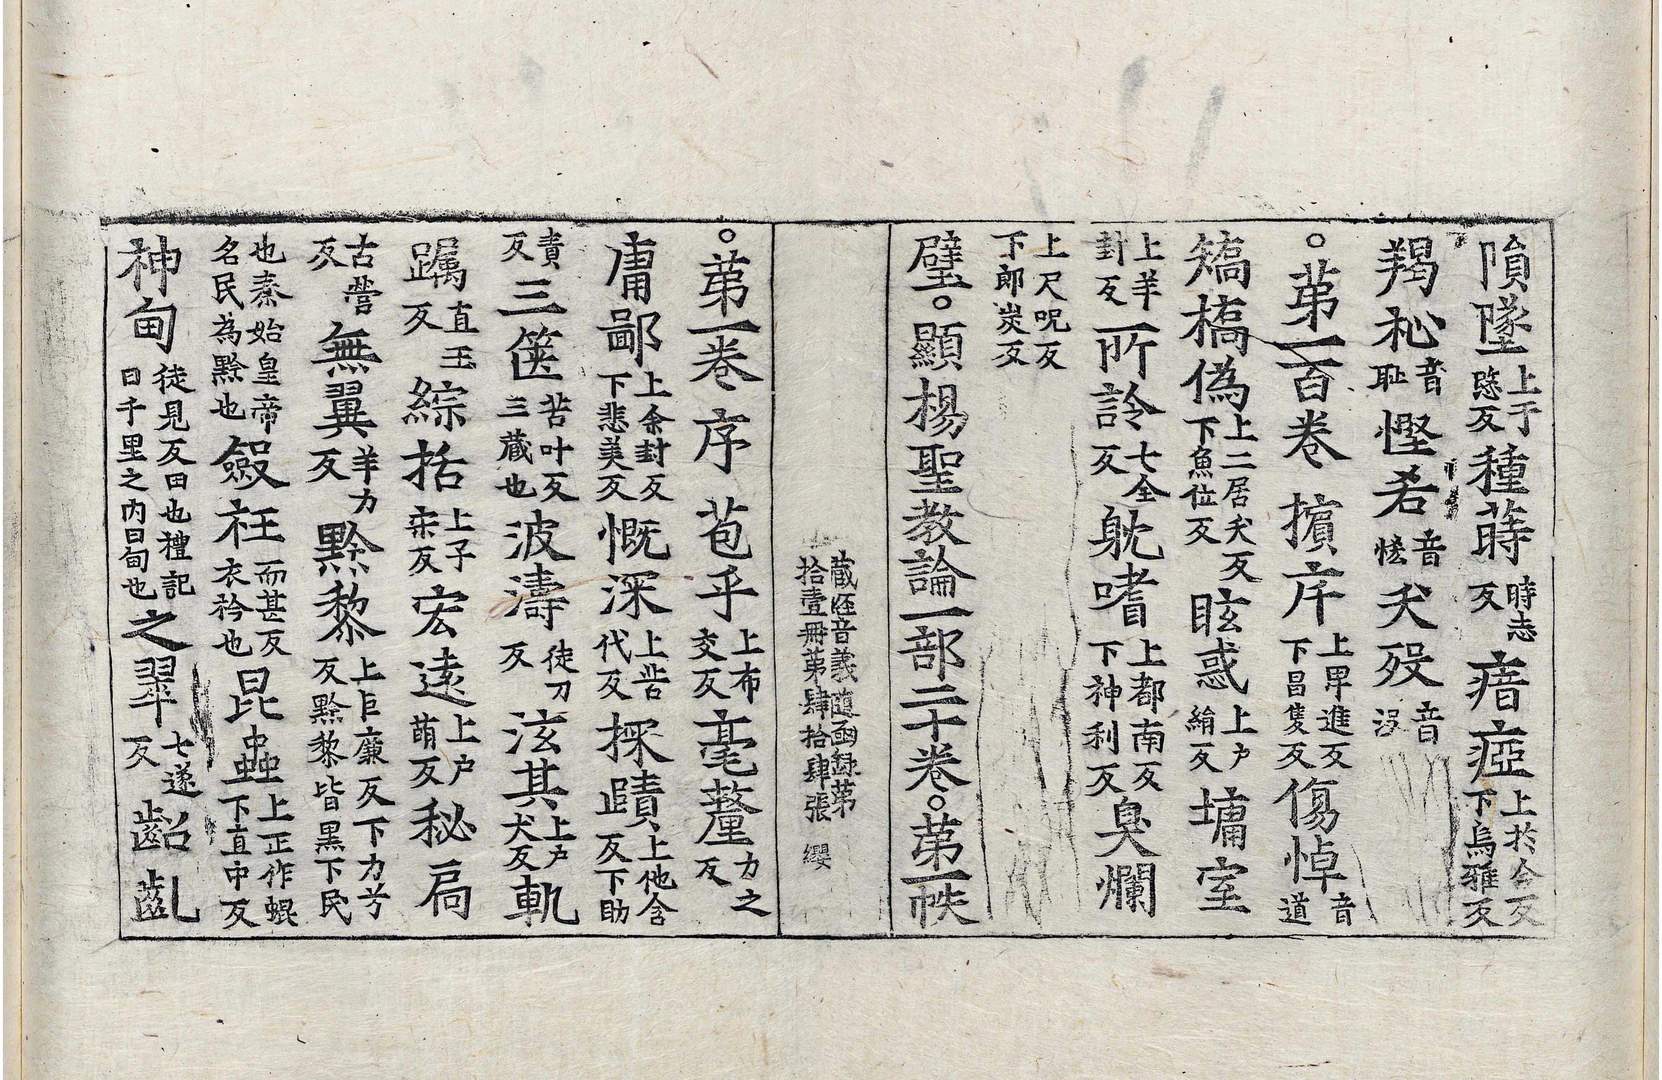 隕墜上于愍反種蒔時志反瘖瘂上於今反下烏雅反
羯杺音耻慳𠫤音恡夭殁音没
。第一百卷 擯斥上畢進反下昌隻反傷悼音道
矯撟偽上二居夭反下魚位反眩惑上户絹反墉室
上羊封反所詅七全反躭嗜上都南反下神利反臭爛
上尺呪反下郎炭反
璧。顯楊聖教論一部二十卷。第一帙
藏經音義隨函録第拾壹冊第肆拾肆張 纓
。第一卷序 苞乎上布交反毫釐力之反
庸鄙上余封反下悲美反慨深上苦代反採賾上他含反下助
責反三篋苦叶反三藏也波濤徒刀反泫其上户犬反軌
躅直玉反綜括上子宋反宏遠上户萌反秘扃
古營反無翼羊力反黔黎上巨廉反下力兮反黔黎皆黑下民
也秦始皇帝名民為黔也斂衽而甚反衣衿也昆蟲上正作蜫下直中反
神甸徒見反田也禮記曰千里之内曰甸也之翠七遂反齠齔